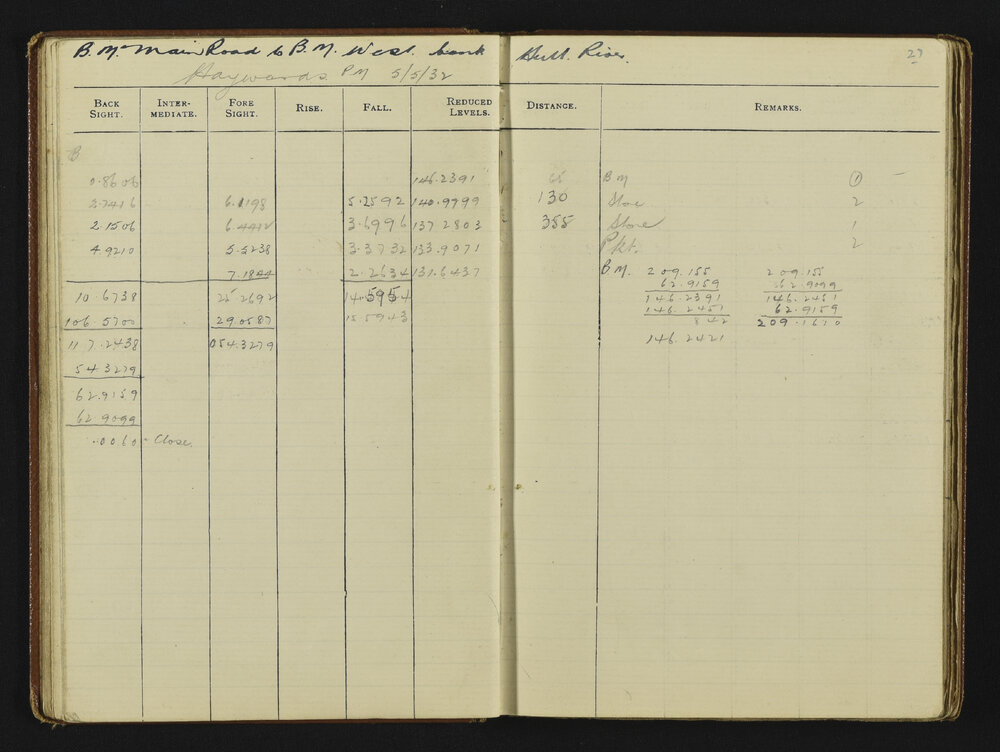 B.M. Main Road to B.M. West bank Hutt River.
27
Haywards PM 5/5/32
BACK SIGHT. INTER-MEDIATE. FORE SIGHT. RISE. FALL. REDUCED LEVELS. DISTANCE. REMARKS.
B
0.8606 146.2391 65 BM 1
2.7416 6.1198 5.2592 140.9799 130 Stone 2
2.1506 6.4412 3.6996 137.2803 355 Stone 1
4.9210 5.5238 3.3732 133.9071 Pkt. 2
7.1844 2.2634 131.6437 B M. 209.155 209.155
62.9159 62.9099
10.6738 25.2692 14.5954 146.2391 146.2451
146.2451 62.9159
106.5700 29.0587 15.5943 842 209.1610
117.2438 054.3279 146.2421
54.3279
62.9159
62.9099
.0060 - Close.